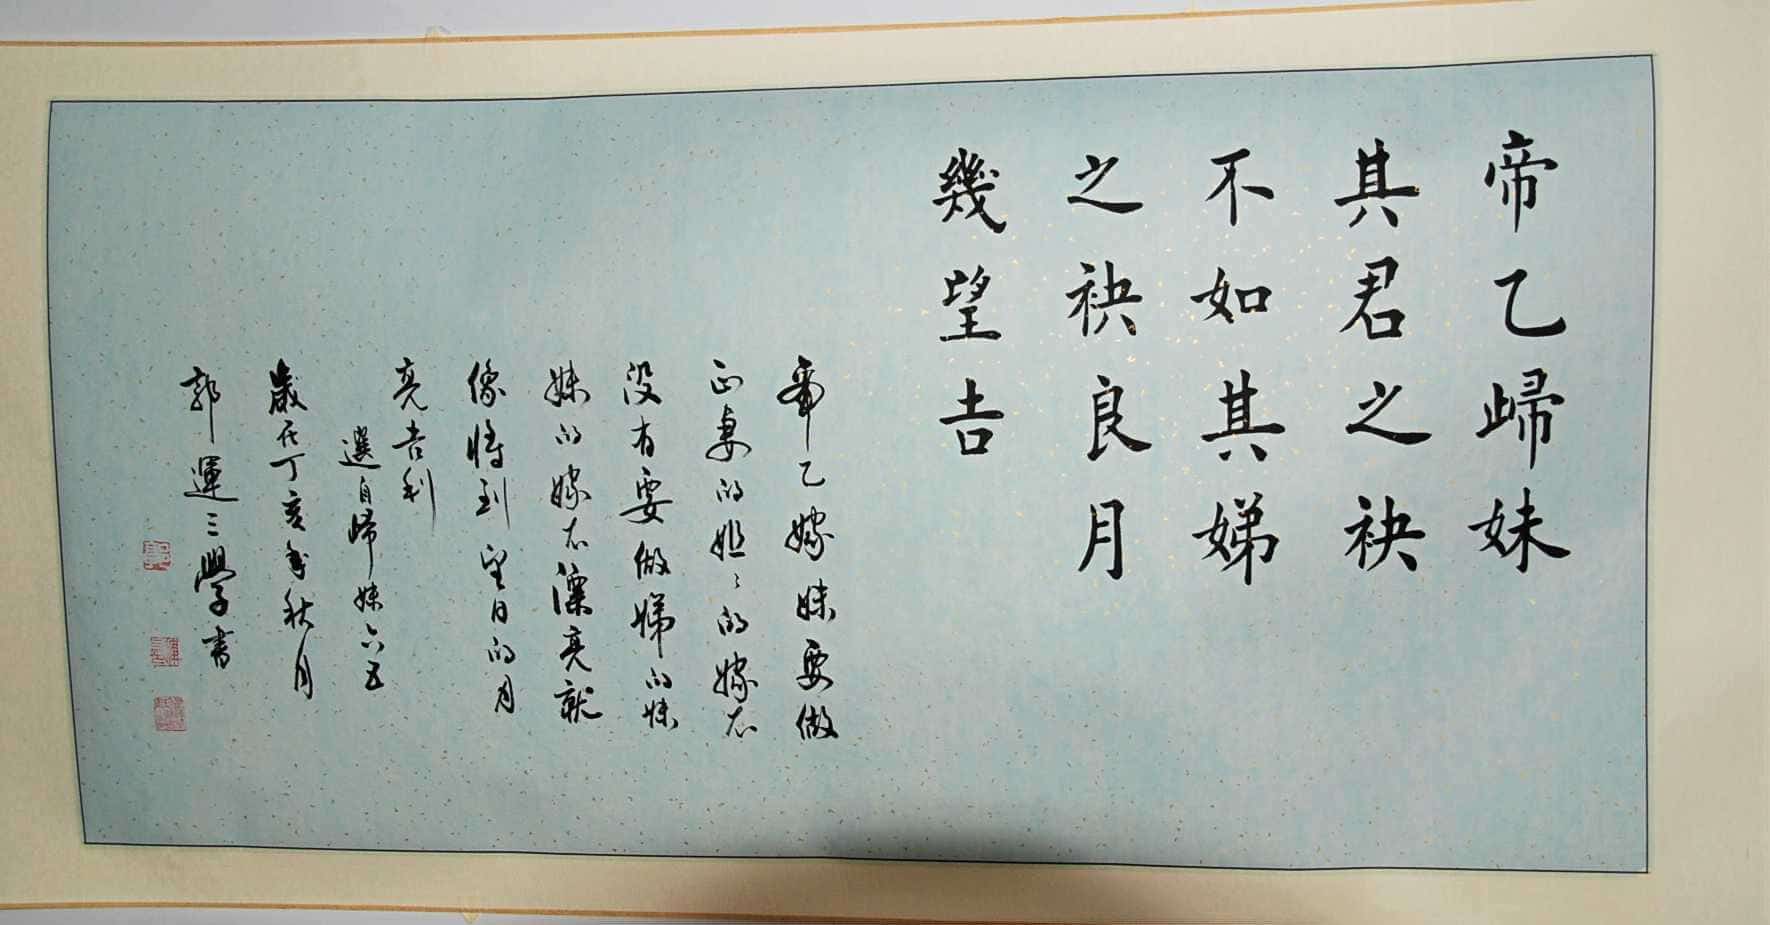 帝乙歸妹
其君之袂
不如其娣
之袂良月
幾望吉
帝乙嫁妹要做
正妻的姐々的嫁衣
没有要做娣的妹
妹的嫁衣漂亮就
像將到望日的月
亮吉利
選自歸妹六五
歲在丁亥年秋月
郭運三學書